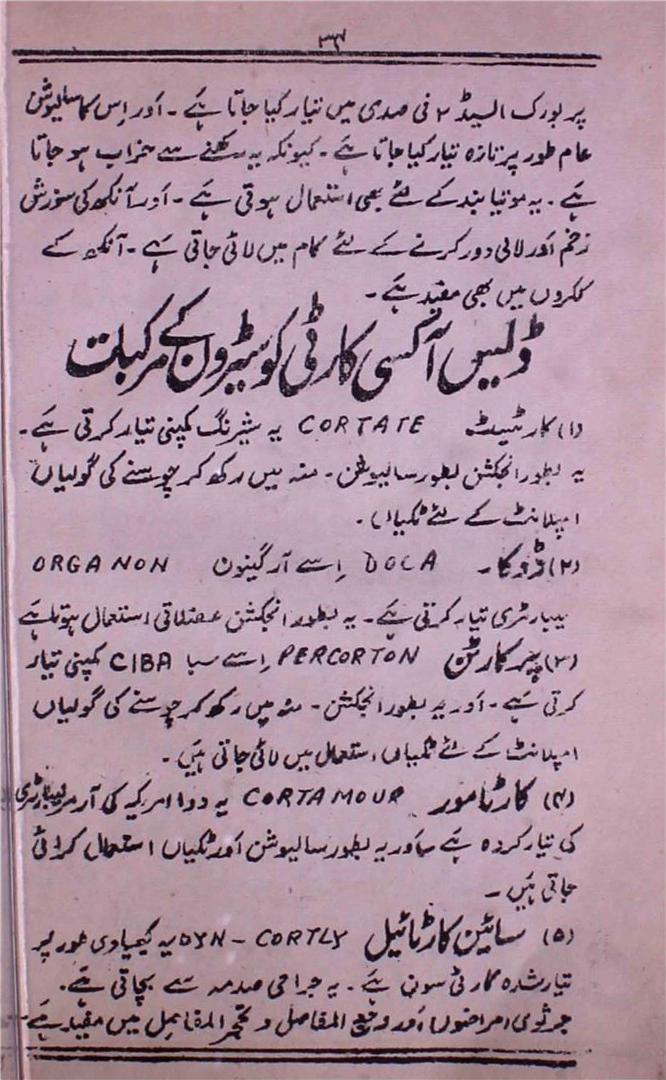 ۳۷
پر بورک السیڈ ۲ فی صدی میں تیار کیا جاتا ہے ۔ اور اِس کا سالیوشن
عام طور پر تازہ تیار کیا جاتا ہے ۔ کیونکہ یہ رکھنے سے خراب ہو جاتا
ہے ۔ یہ موتیا بند کے لئے بھی استعمال ہوتی ہے ۔ اور آنکھ کی سوزش
زخم اور لالی دور کرنے کے لئے کام میں لائی جاتی ہے ۔ آنکھ کے
ککروں میں بھی مفید ہے ۔
ڈلیس آکسی کارٹی کوسٹیرون کے مرکبات
(۱) کارٹیٹ CORTATE یہ شیرنگ کمپنی تیار کرتی ہے ۔
یہ بطور انجکشن بطور سالیوشن ۔ منہ میں رکھ کر چوسنے کی گولیاں
امپلانٹ کے لئے ٹکیاں ۔
(۲) ڈوکا ۔ DOCA اِسے آرگینون ORGANON
لیبارٹری تیار کرتی ہے ۔ یہ بطور انجکشن عضلاتی استعمال ہوتا ہے
(۳) پرکارٹن PERCORTON اِسے سبا CIBA کمپنی تیار
کرتی ہے ۔ اور یہ بطور انجکشن ۔ منہ میں رکھ کر چوسنے کی گولیاں
امپلانٹ کے لئے ٹکیاں استعمال میں لائی جاتی ہیں ۔
(۴) کارٹامور CORTAMOUR یہ دوا امریکہ کی آرمر لیبارٹری
کی تیار کردہ ہے اور یہ بطور سالیوشن اور ٹکیاں استعمال کرائی
جاتی ہیں ۔
(۵) سائین کارٹائیل DYN-CORTLY یہ کیمیاوی طور پر
تیار شدہ کارٹی سون ہے ۔ یہ جراحی صدمہ سے بچاتی ہے ۔
جرثومی امراض اور وجع المفاصل و تحجر المفاصل میں مفید ہے ۔